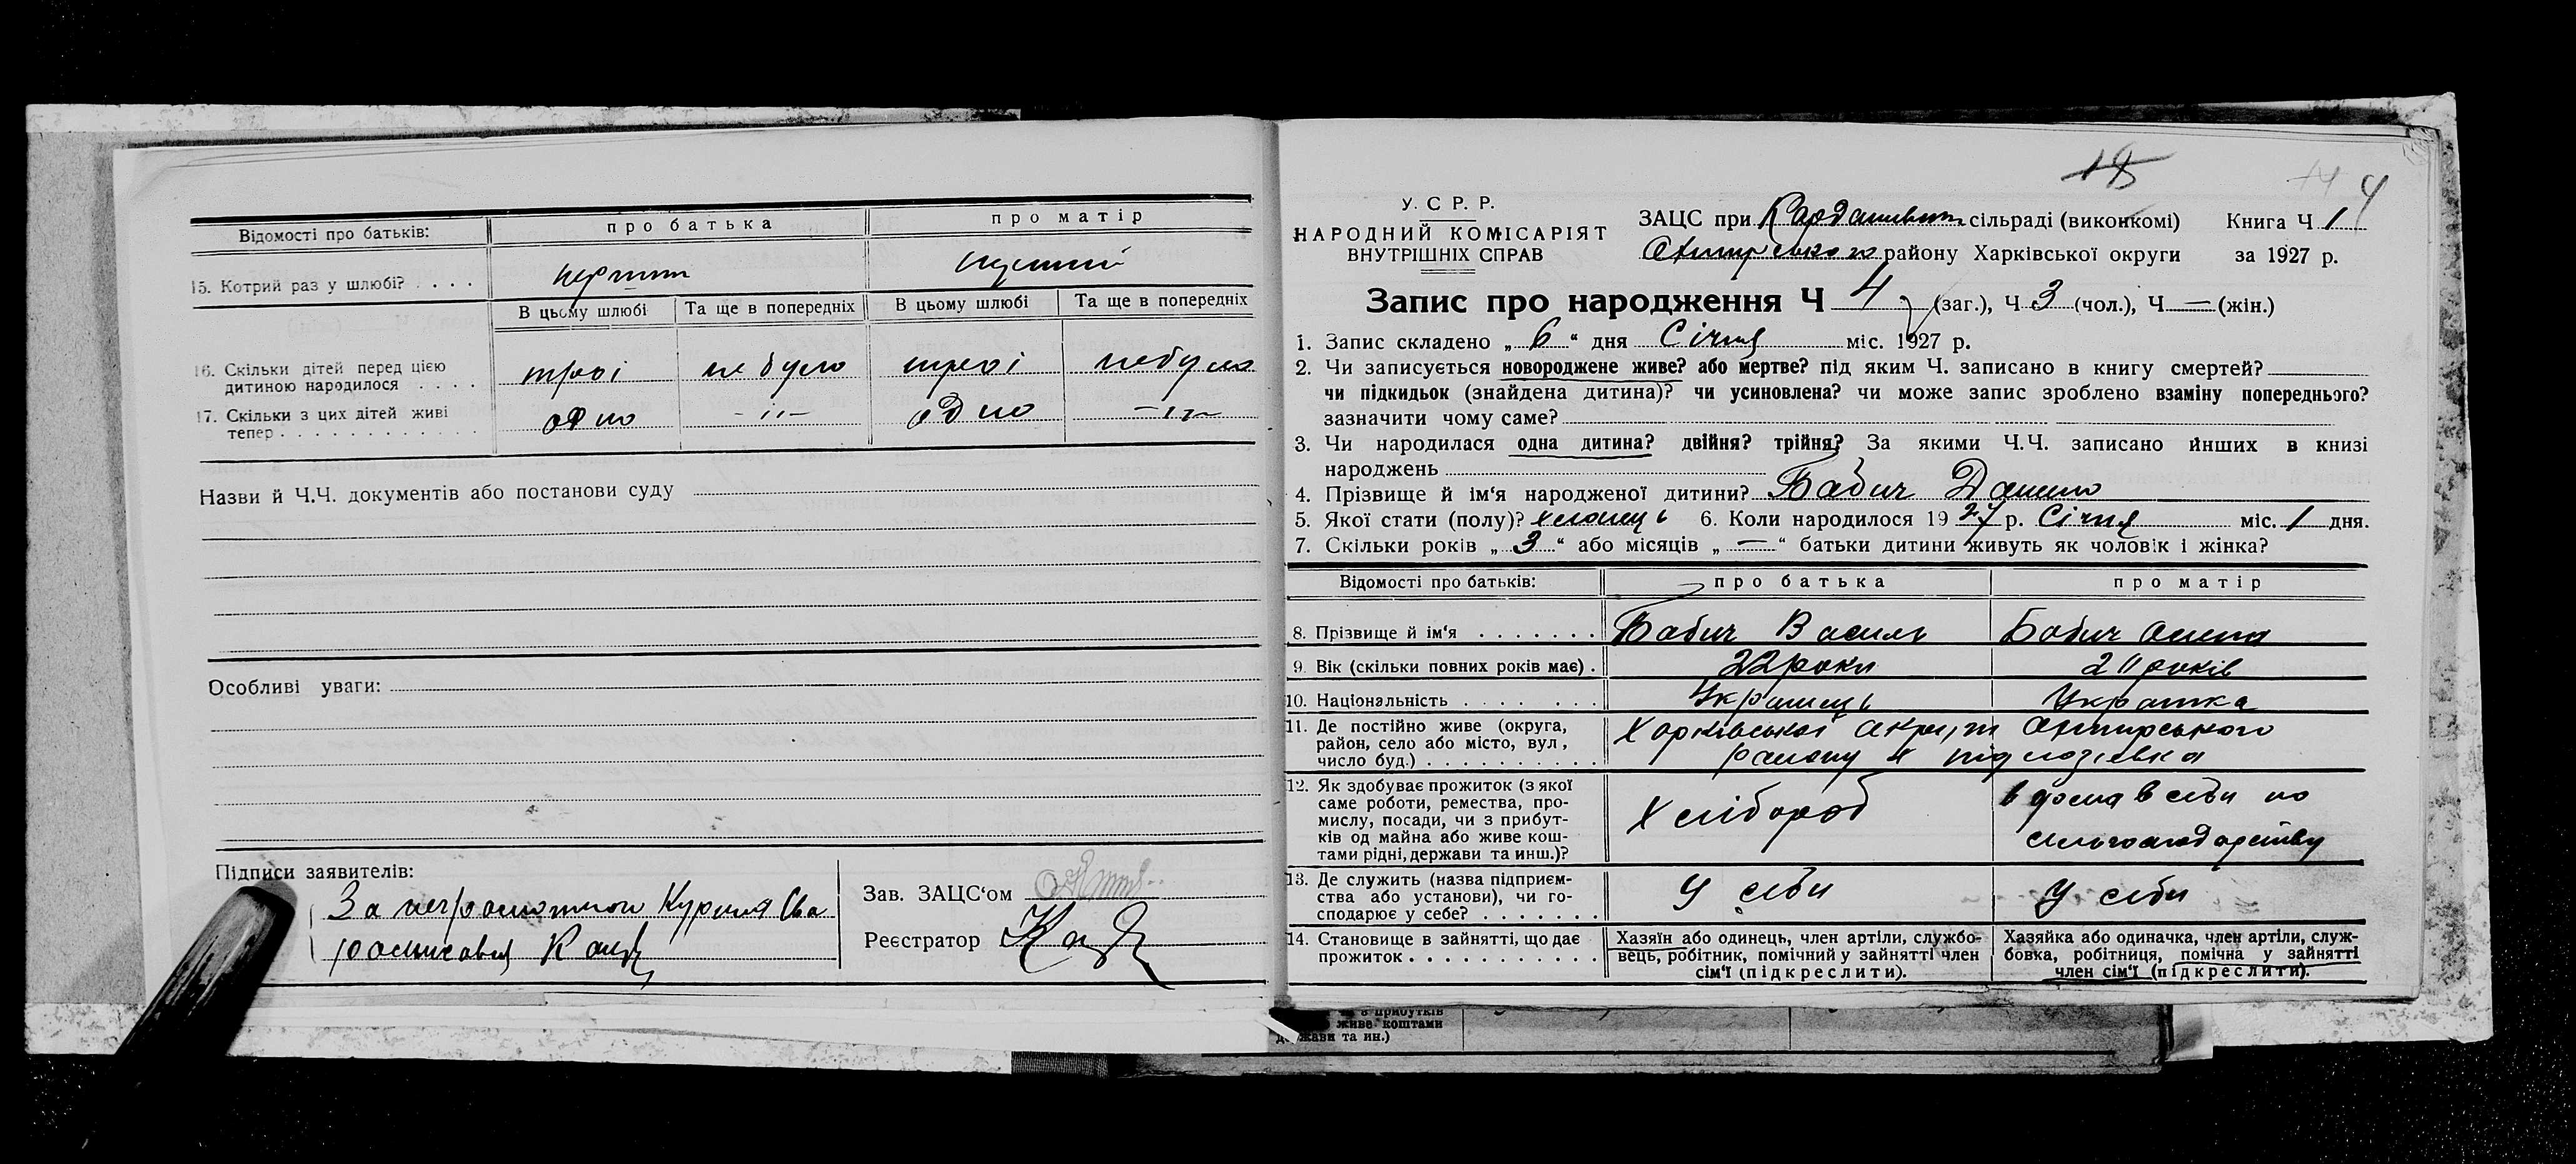 Відомості про батьків: про батька про матір
15. Котрий раз у шлюбі? . . . .
В цьому шлюбі Та ще в попередніх В цьому шлюбі Та ще в попередніх
16. Скільки дітей перед цією
дитиною народилося . . . . троі не було троі не було
17. Скільки з цих дітей живі
тепер . . . . . . . . . . . . одно -〃- одно -〃-
Назви й Ч.Ч. документів або постанови суду
Особливі уваги:
Підписи заявителів:
За
Зав. ЗАЦС‘ом
Реєстратор
18
14 4
У. С Р. Р.
НАРОДНИЙ КОМІСАРІЯТ
ВНУТРІШНІХ СПРАВ
ЗАЦС при сільраді (виконкомі) Книга Ч 1
району Харківської округи за 1927 р.
Запис про народження Ч 4 (заг.), Ч 3 (чол.), Ч — (жін.)
1. Запис складено „ 6 “ дня Січня міс. 1927 р.
2. Чи записується новороджене живе? або мертве? під яким Ч. записано в книгу смертей?
чи підкидьок (знайдена дитина)? чи усиновлена? чи може запис зроблено взаміну попереднього?
зазначити чому саме?
3. Чи народилася одна дитина? двійня? трійня? За якими Ч.Ч. записано йнших в книзі
народжень
4. Прізвище й ім‘я народженої дитини? Бабич Данило
5. Якої стати (полу)? хлопець 6. Коли народилося 1927 р. Січня міс. 1 дня.
7. Скільки років „ 3 “ або місяців „ — “ батьки дитини живуть як чоловік і жінка?
Відомості про батьків: про батька про матір
8. Прізвище й ім‘я . . . . . . . Бабич Василь Бабич
9. Вік (скільки повних років має) . 22 роки років
10. Національність . . . . . . . Українець Українка
11. Де постійно живе (округа,
район, село або місто, вул,
число буд.) . . . . . . . . . . Харківської округи
району х
12. Як здобуває прожиток (з якої
саме роботи, ремества, про-
мислу, посади, чи з прибут-
ків од майна або живе кош-
тами рідні, держави та инш.)? Хлібороб
13. Де служить (назва підприєм-
ства або установи), чи го-
сподарює у себе? . . . . . . . У себи У себи
14. Становище в зайнятті, що дає
прожиток . . . . . . . . . . .
Хазяїн або одинець, член артіли, службо-
вець, робітник, помічний у зайнятті член
сім‘ї (підкреслити).
Хазяйка або одиначка, член артіли, служ-
бовка, робітниця, помічна у зайнятті
член сім‘ї (підкреслити).
живе коштами
та ин.)